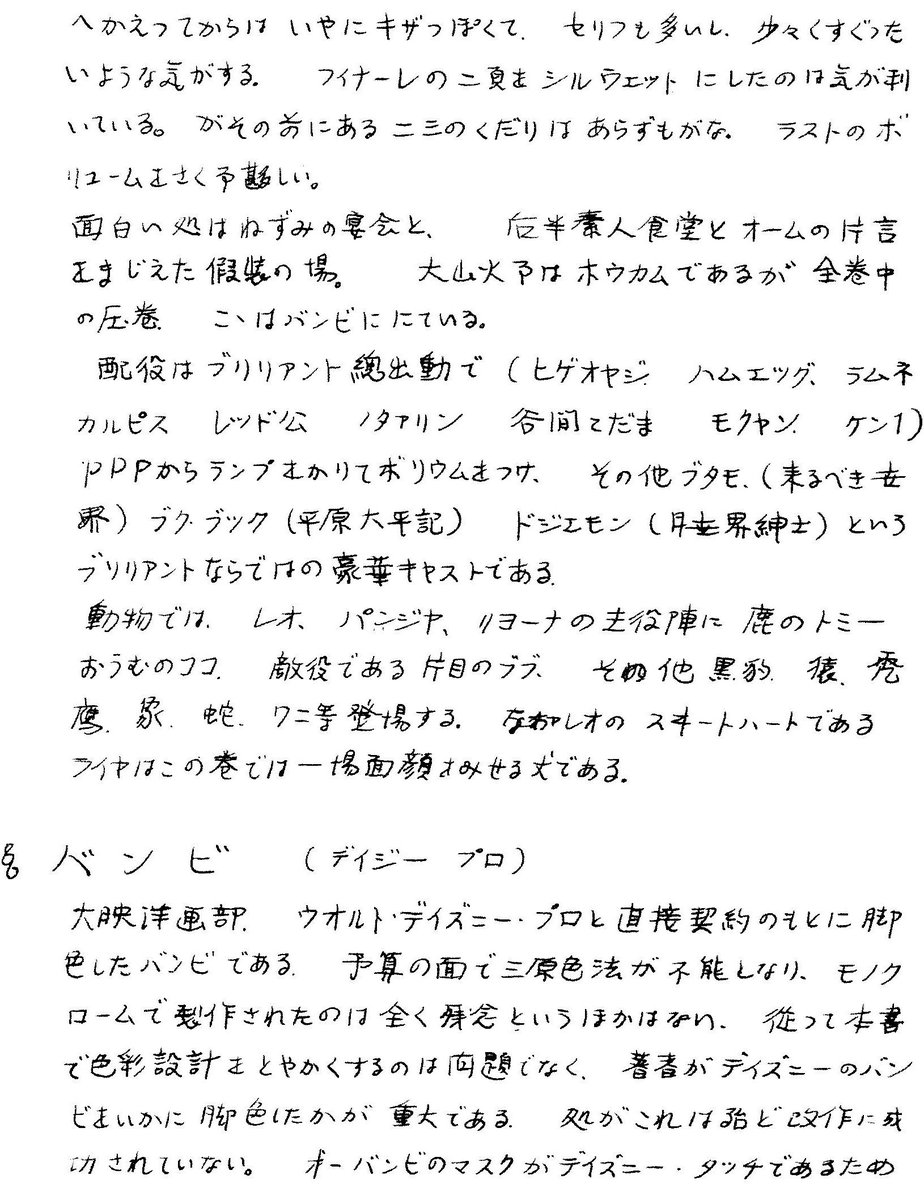 へかえってからは いやにキザっぽくて、 セリフも多いし、少々くすぐった
いような気がする。 フイナーレの二頁を シルウェット にしたのは気が利
いている。がその前にある 二三のくだりは あらずもがな。 ラストのボ
リユームをさく予 しい。
面白い処はねずみの宴会と、 后半素人食堂と オームの片言
をまじえた 假装の場。 大山火事はホウカムであるが 全巻中
の圧巻、 こゝはバンビににている。
配役はブリリアント 總出動で (ヒゲオヤジ、 ハムエッグ、 ラムネ
カルピス レッド公 ノタアリン 谷間てだま モクサン、 ケン1)
PPPからランプをかりてボリウムをつけ、 その他ブタモ、(来るべき世
界) ブク・ブック (平原太平記) ドジエモン (月世界紳士) という
ブリリアントならではの豪華キャストである。
動物では、 レオ、 パンジヤ、リヨーナの主役陣に 鹿のトミー
おうむのココ、 敵役である片目のブブ、 その他 黒豹、猿、禿
鷹、象、蛇、ワニ等登場する。 なおレオの スヰートハートである
ライヤはこの巻では一場面顔をみせる丈である。
§ バンビ (デイジー プロ)
大映洋画部、 ウオルト・デイズニー・プロと直接契約のもとに脚
色したバンビである。 予算の面で三原色法が不能となり、モノク
ロームで製作されたのは全く残念というほかはない、 従って本書
で色彩設計をとやかくするのは問題でなく、 著者がデイズニーのバン
ビをいかに脚色したかが 重大である。 処がこれは殆ど改作に成
功されていない。 オ一バンビのマスクがデイズニー・タッチであるため